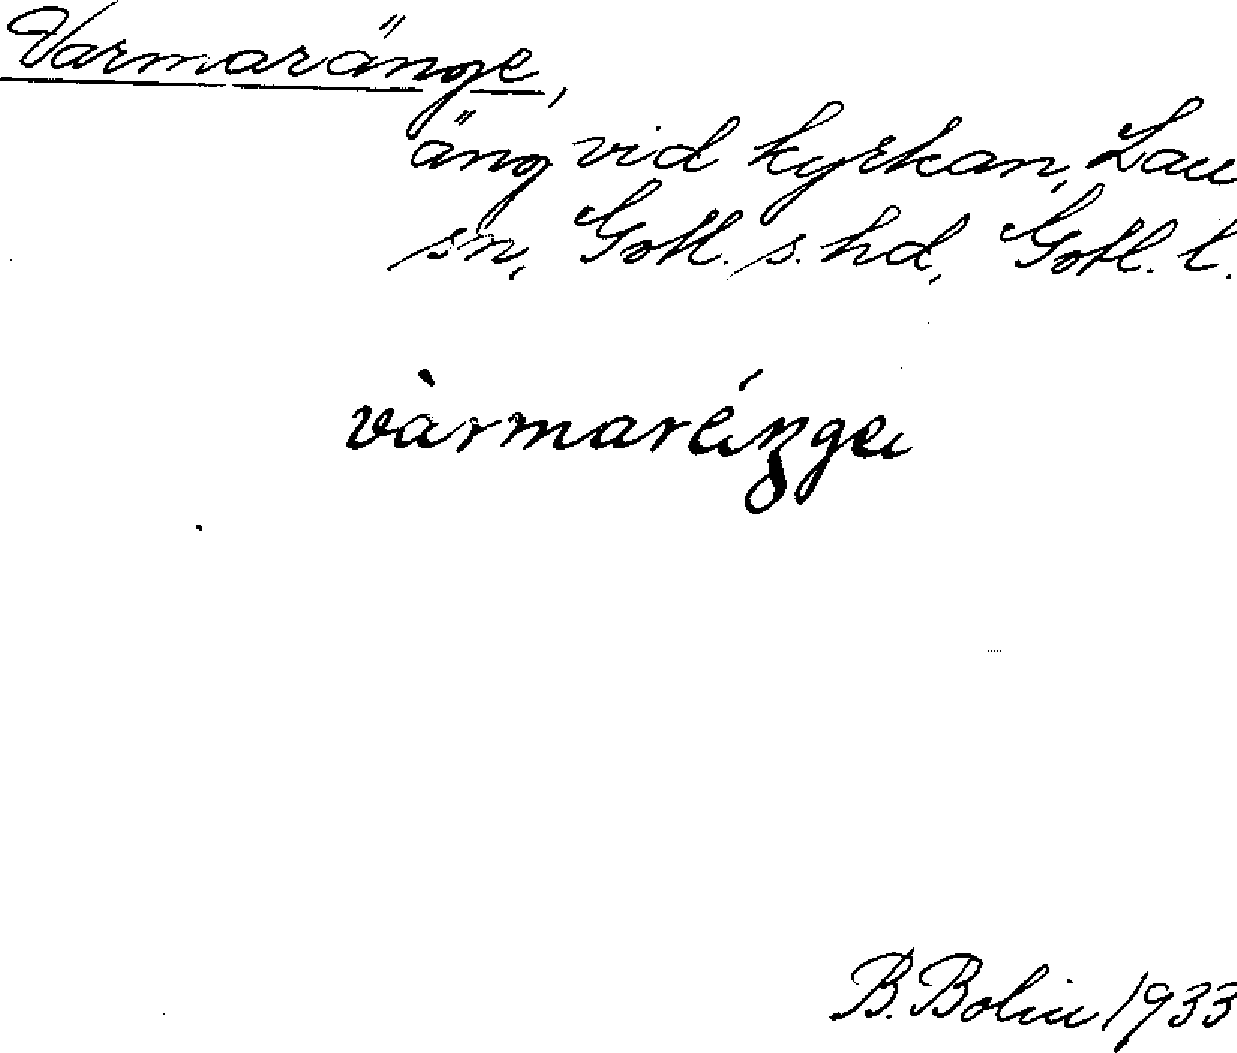 Varmaränge,
äng vid kyrkan, Lau
sn, Gotl. s. hd, Gotl. l.
vàrmaréŋgeı
B. Bolin 1933